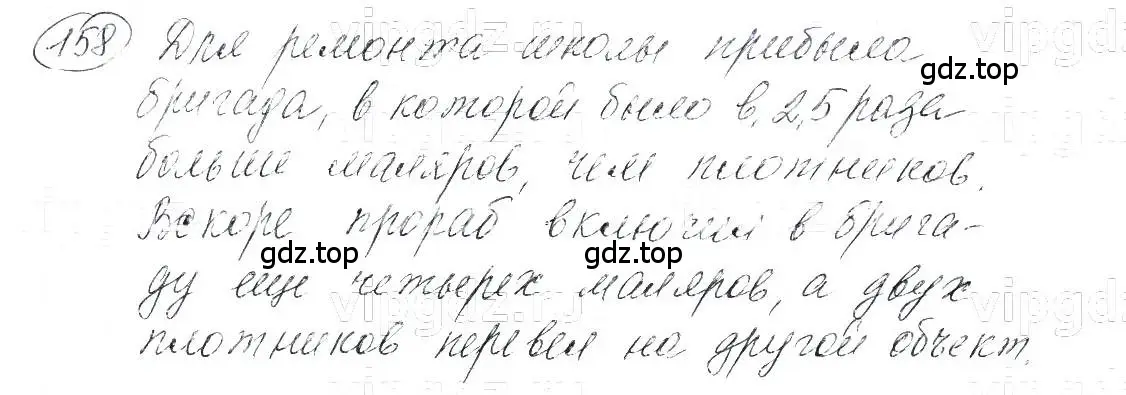 158 Для ремонта школы прибыла
gdz.top
бригада, в которой было в 2,5 раза
больше маляров, чем плотников.
Вскоре прораб включил в брига-
gdz.top
gdz.top
ду еще четырех маляров, а двух
плотников перевел на другой объект.
gdz.top